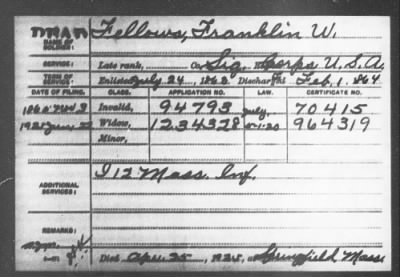 Fellows, Franklin W.
NAME OF SOLDIER:
SERVICE: Late rank, Co. Sig. Corps U.S.A.
TERM OF SERVICE: Enlisted July 24, 1863 Discharged Feb. 1. 1864
DATE OF FILING. CLASS. APPLICATION NO. LAW. CERTIFICATE NO.
Invalid, 94793 July, 70415
Widow, 1234328 964319
Minor,
I 12 Mass. Inf.
ADDITIONAL SERVICES:
REMARKS:
Died Apr. 25, 1925, at Springfield, Mass.